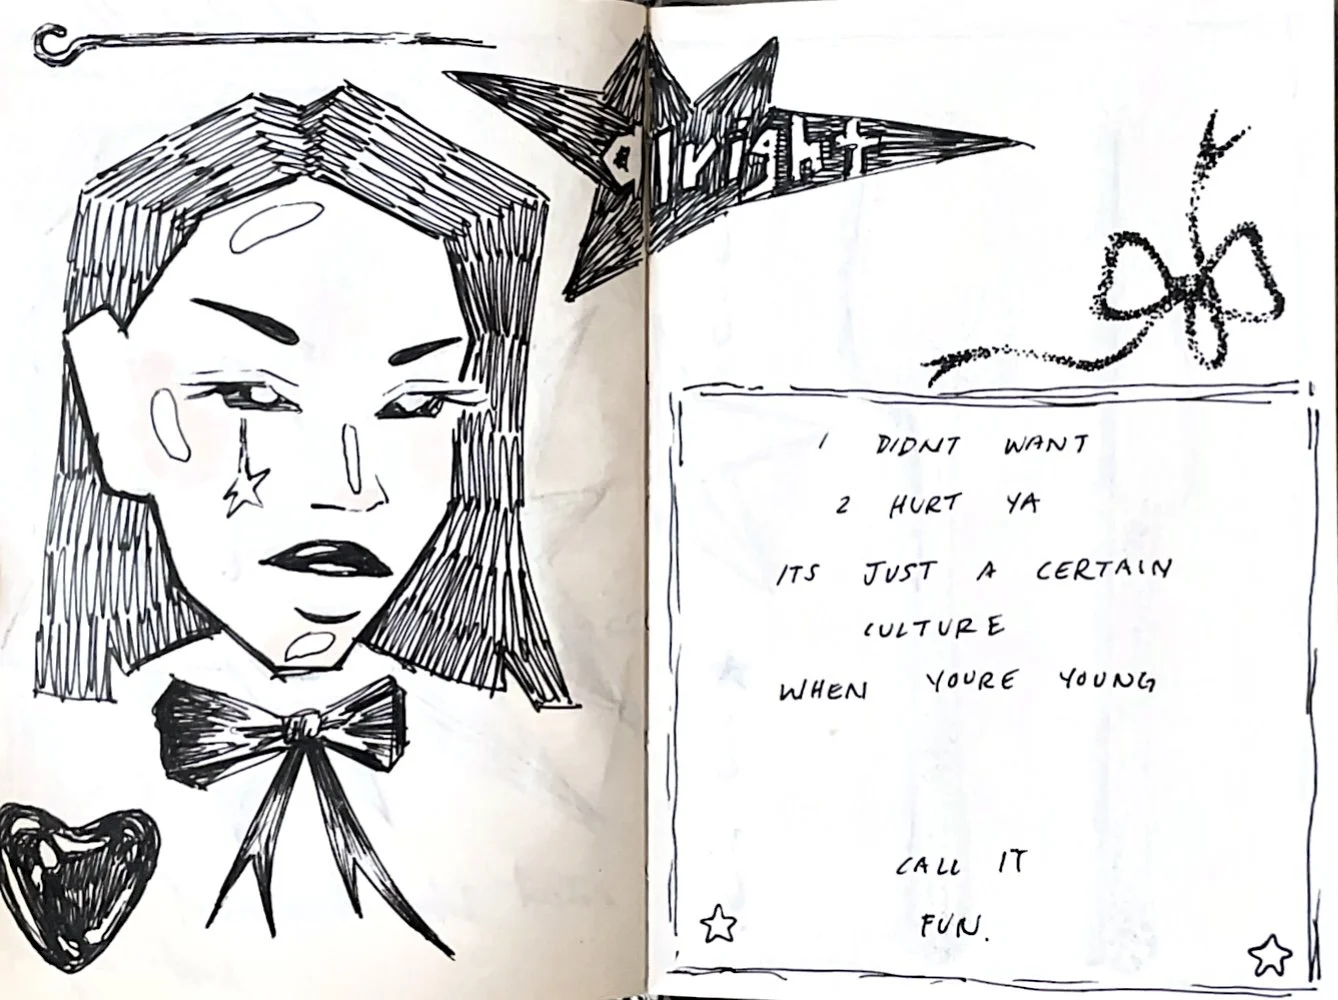 alright
I DIDNT WANT
2 HURT YA
ITS JUST A CERTAIN
CULTURE
WHEN YOURE YOUNG
CALL IT
FUN.